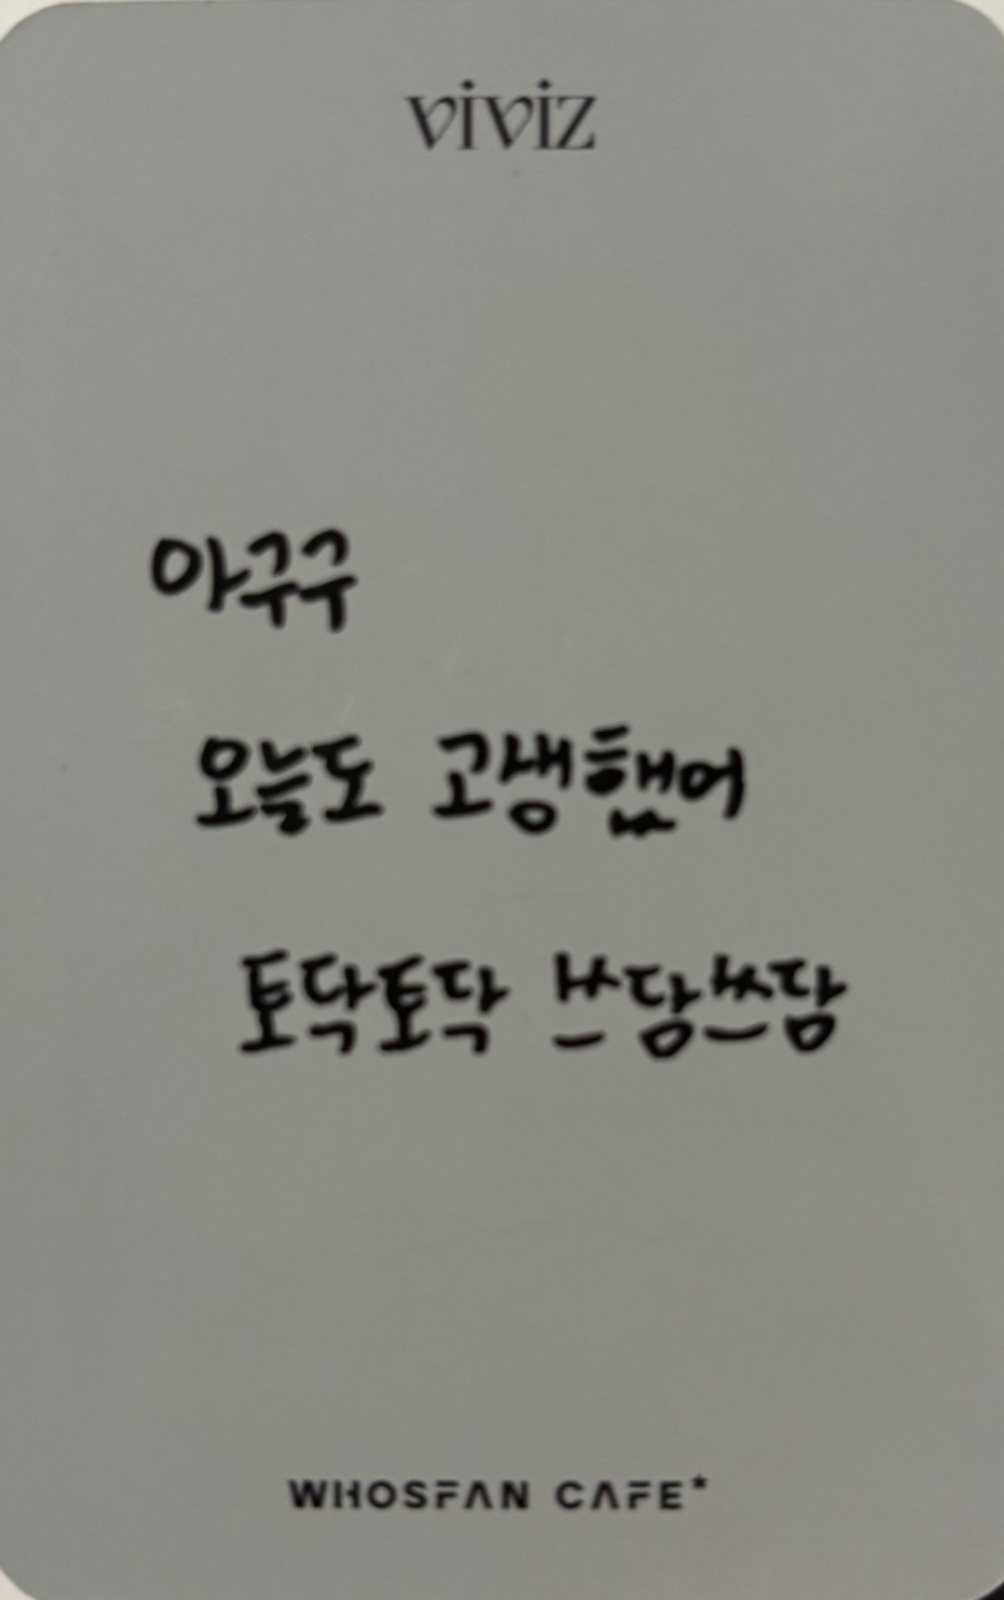 viviz
아구구
오늘도 고생했어
토닥토닥 쓰담쓰담
WHOSFAN CAFE*